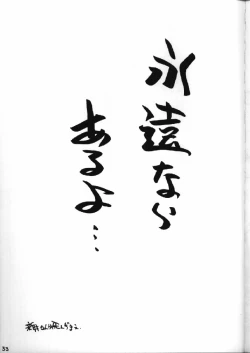 永遠なら
あるよ…
33